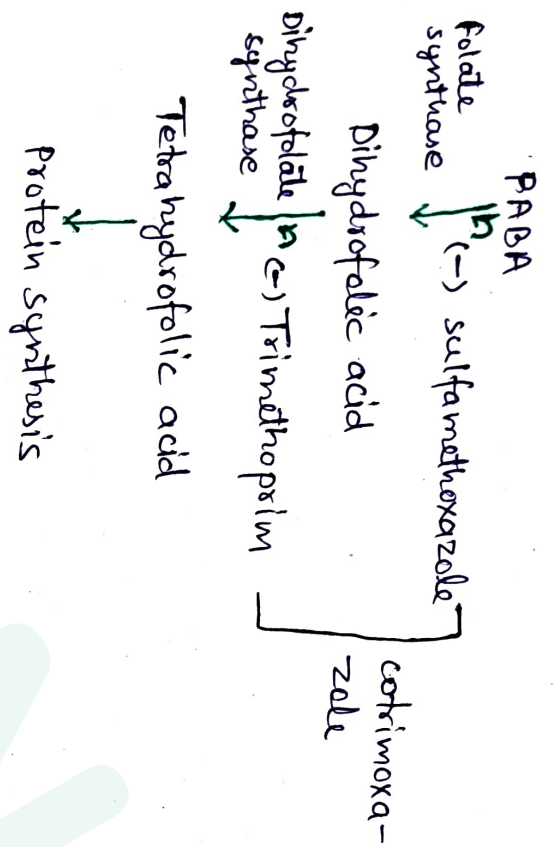 PABA
Folate
synthase
(-) sulfamethoxazole
Dihydrofolic acid
Dihydrofolate
synthase
(-) Trimethoprim
cotrimoxa-
zole
Tetrahydrofolic acid
Protein synthesis